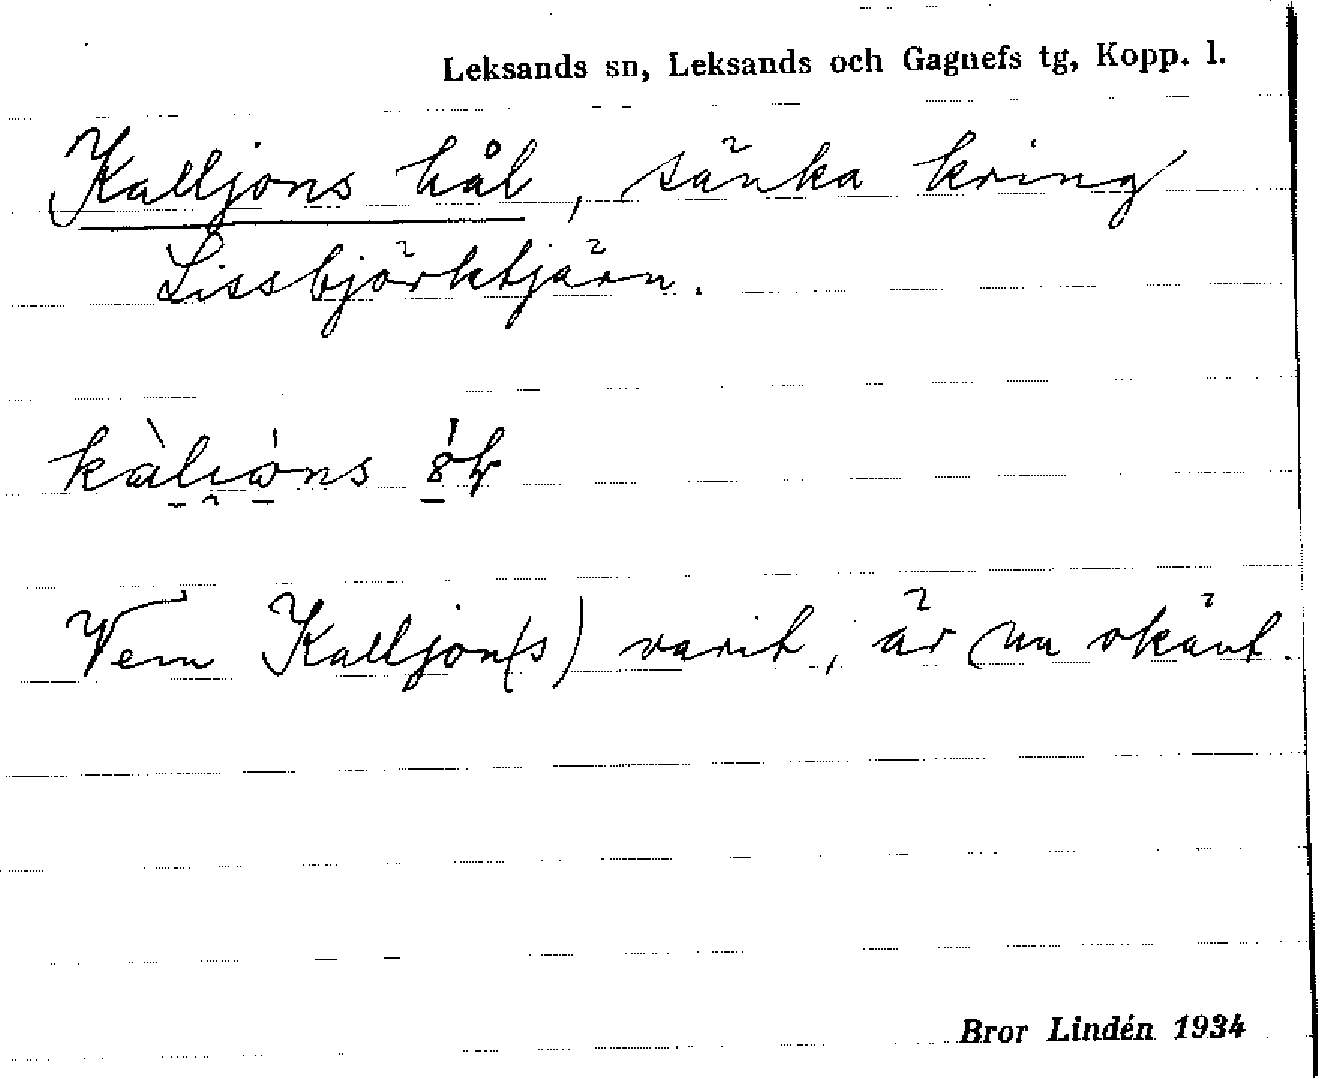 Leksands sn, Leksands och Gagnefs tg, Kopp. l.
Kalljons hål, sänka kring
Lissbjörktjärn.
Vem Kalljon(s) varit, är nu okänt.
Bror Lindén 1934